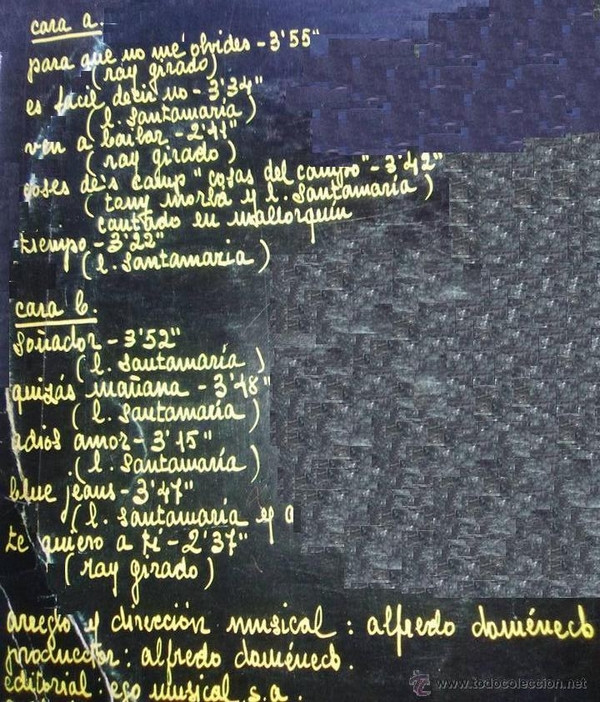 cara a.
para que no me olvides - 3'55"
(ray girado)
es facil decir no - 3'34"
(l. santamaría)
ven a bailar - 2'41"
(ray girado)
coses de's camp "cosas del campo" - 3'42"
(tony morla y l. santamaría)
cantado en mallorquín
tiempo - 3'22"
(l. santamaria)
cara b.
soñador - 3'52"
(l. santamaría)
quizás mañana - 3'48"
(l. santamaría)
adios amor - 3'15"
(l. santamaría)
blue jeans - 3'47"
(l. santamaría y a
te quiero a ti - 2'37"
(ray girado)
arreglo y dirección musical: alfredo doménech
productor: alfredo doménech.
editorial: ego musical s.a.
www.todocoleccion.net